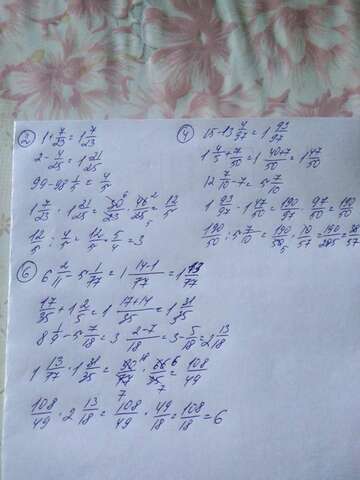 ② 1+7/23=1 7/23
2-4/25=1 21/25
99-98 1/5=4/5
1 7/23·1 21/25=30/23·46/25=12/5
12/5:4/5=12/5·5/4=3
④ 15-13 4/97=1 93/97
1 4/5+7/50=1 40+7/50=1 47/50
12 7/10-7=5 7/10
1 93/97·1 47/50=190/97·97/50=190/50
190/50:5 7/10=190/50·10/57=190/285=38/57
⑥ 6 2/11-5 1/77=1 14-1/77=1 13/77
17/35+1 2/5=1 17+14/35=1 31/35
8 1/9-5 5/18=3 2-7/18=3-5/18=2 13/18
1 13/77·1 31/35=90/77·66/35=108/49
108/49·2 13/18=108/49·49/18=108/18=6